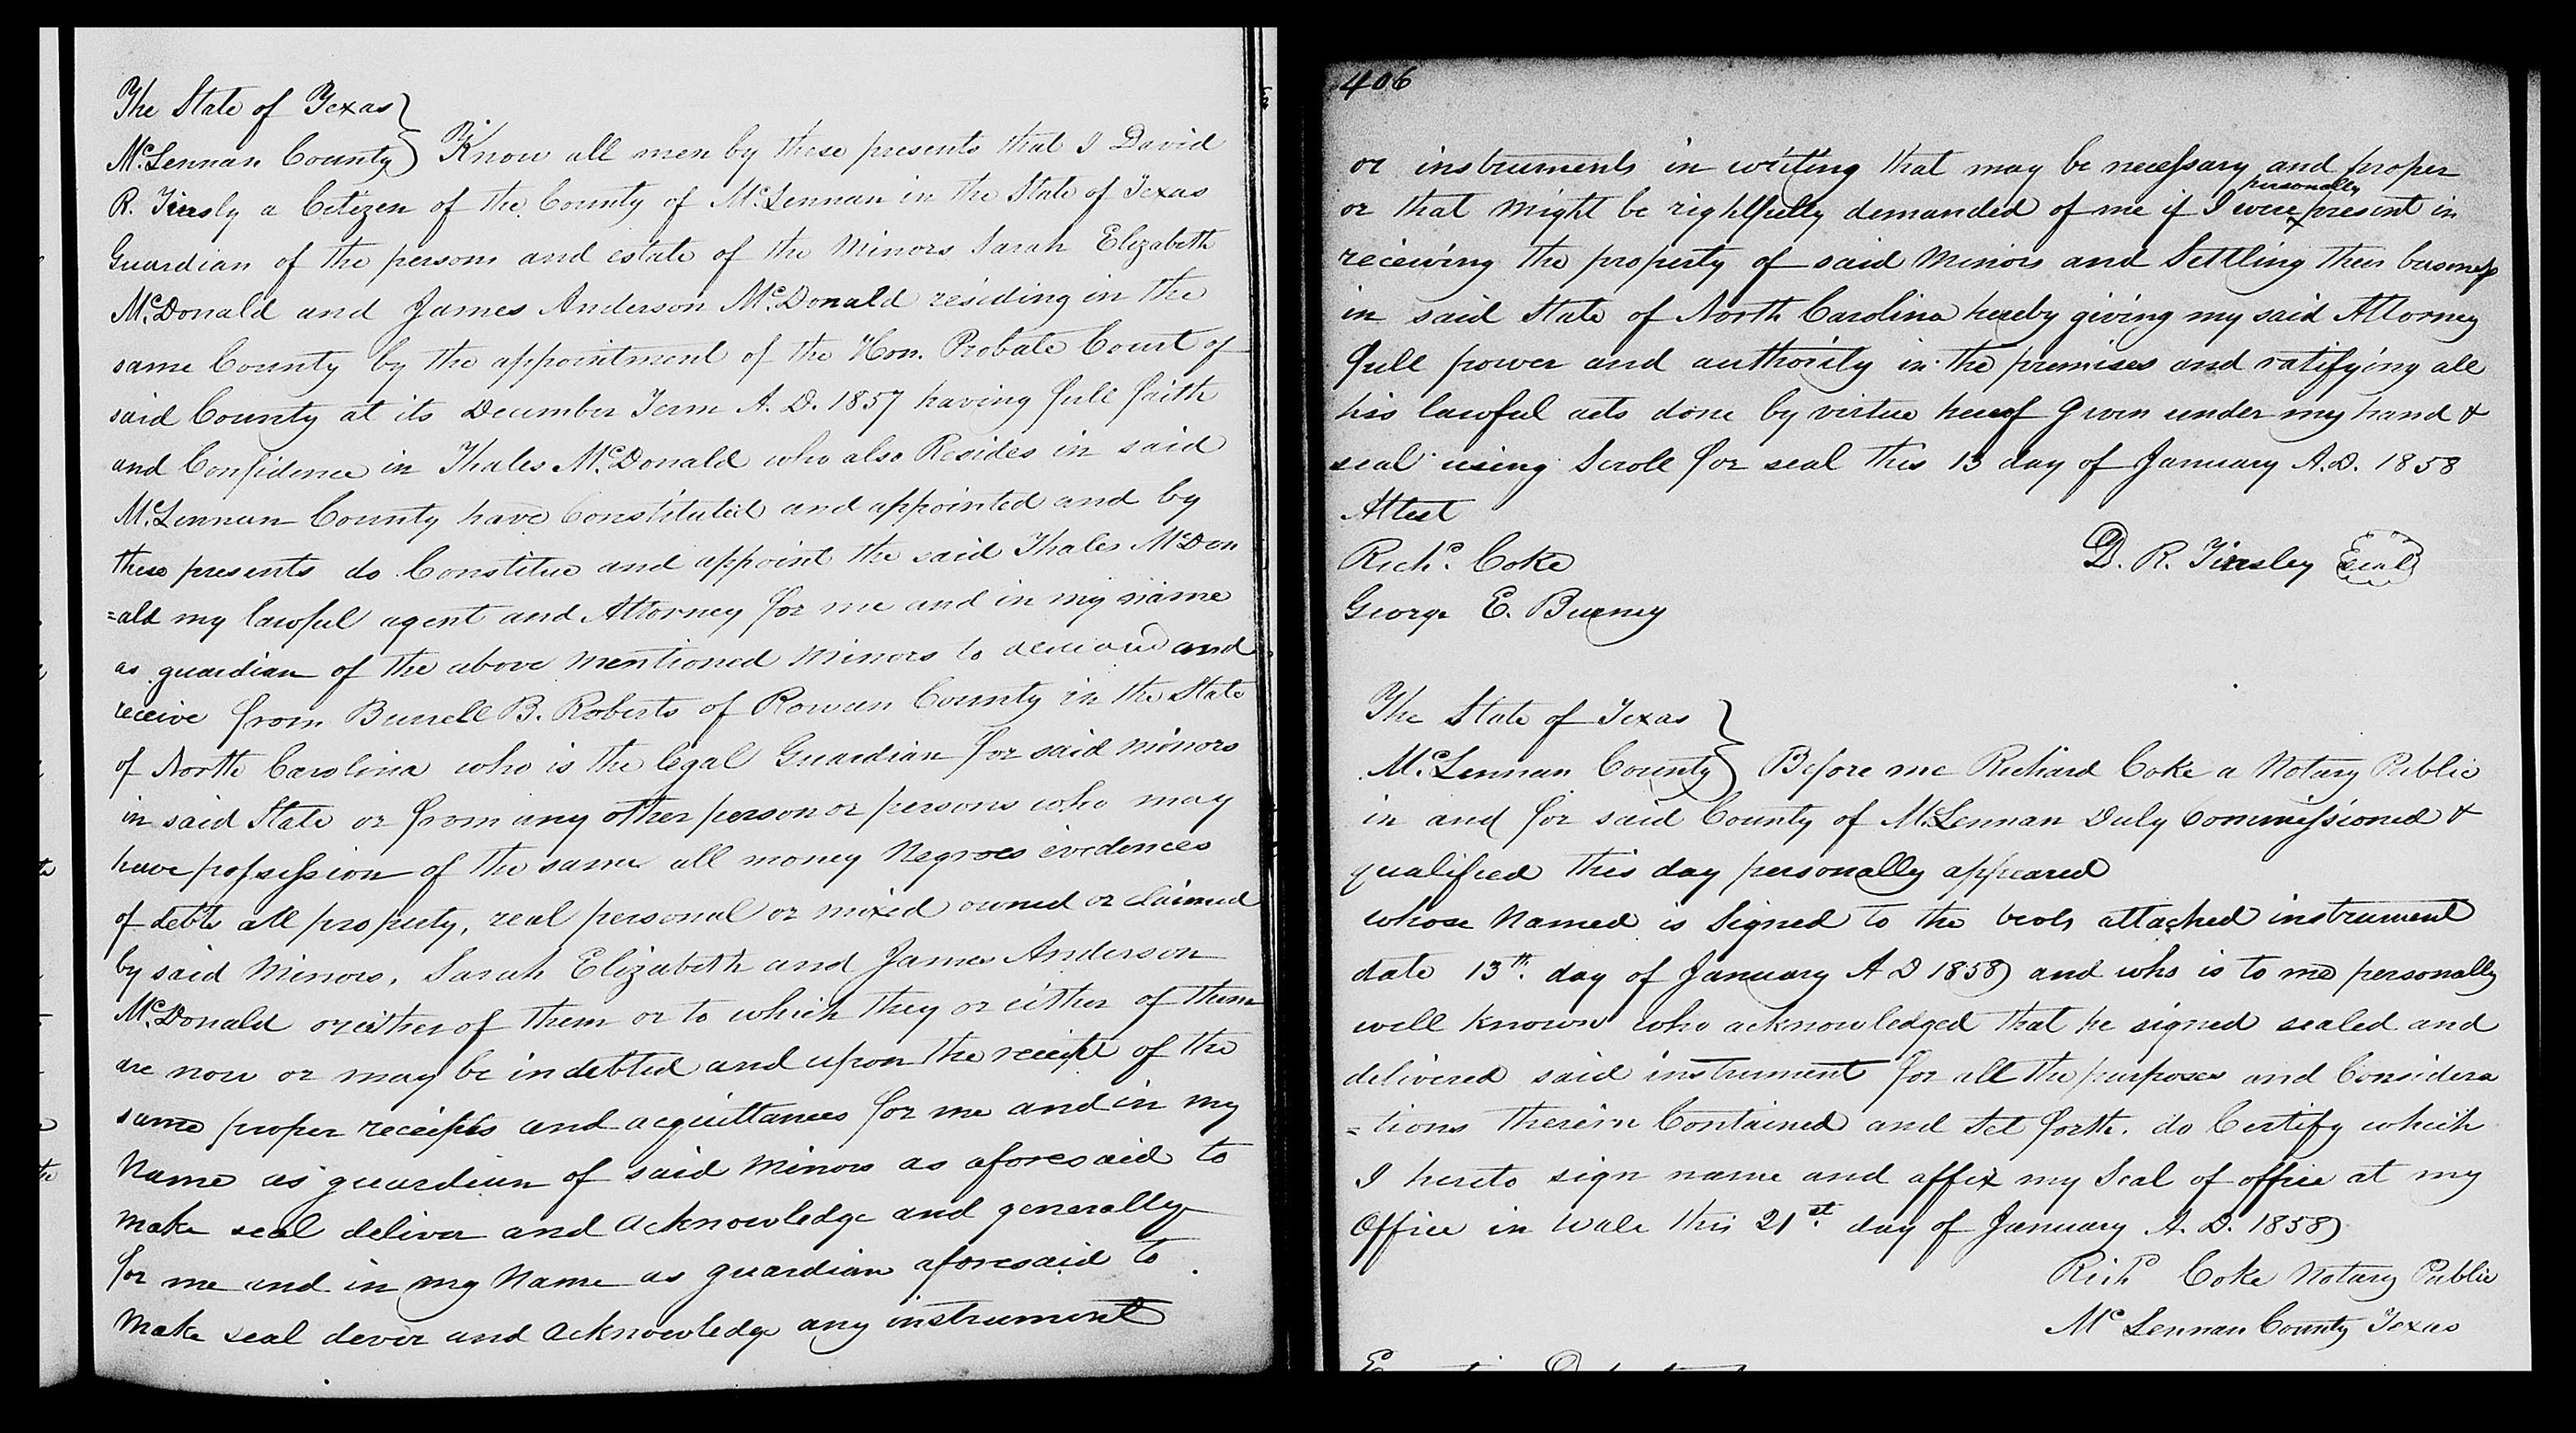 The State of Texas
McLennan County Know all men by these presents that I David
R. Tinsly a Citizen of the County of McLennan in the State of Texas
Guardian of the persons and estate of the Minors Sarah Elizabeth
McDonald and James Anderson McDonald residing in the
same County by the appointment of the Hon. Probate Court of
said County at its December Term A. D. 1857 having full faith
and Confidence in Thales McDonald who also Resides in said
McLennan County have Constituted and appointed and by
these presents do Constitue and appoint the said Thales McDon
=ald my lawful agent and Attorney for me and in my name
as guardian of the above mentioned minors to and
receive from Burrell B. Roberts of Rowan County in the State
of North Carolina who is the legal Guardian for said minors
in said State or from any other person or persons who may
have possession of the same all money Negroes evidences
of debts all property, real personal or mixed owned or claimed
by said Minors, Sarah Elizabeth and James Anderson
McDonald or either of them or to which they or either of them
are now or may be indebted and upon the receipt of the
same proper receipts and acquittances for me and in my
Name as guardian of said Minors as aforesaid to
make seal deliver and acknowledge and generally
for me and in my Name as guardian aforesaid to
make seal dever and acknowledge any instrument
406
or instruments in writing that may be necessary and proper
or that might be rightfully demanded of me if I were personally present in
receiving the property of said Minors and Settling their business
in said State of North Carolina hereby giving my said Attorney
full power and authority in the premises and ratifying all
his lawful acts done by virtue hereof Given under my hand &
seal using Scroll for seal this 13 day of January A.D. 1858
Attest
Richd. Coke
D. R. Tinsley Seal
George E. Burney
The State of Texas
McLennan County Before me Richard Coke a Notary Public
in and for said County of McLennan Duly Commissioned &
qualified this day personally appeared
whose Named is Signed to the attached instrument
date 13th. day of January A D 1858 and who is to me personally
well known who acknowledged that he signed sealed and
delivered said instrument for all the purposes and Considera
=tions therein Contained and Set forth. do Certify which
I hereto sign name and affix my Seal of office at my
Office in this 21st. day of January A. D. 1858
Richd Coke Notary Public
Mc Lennan County Texas